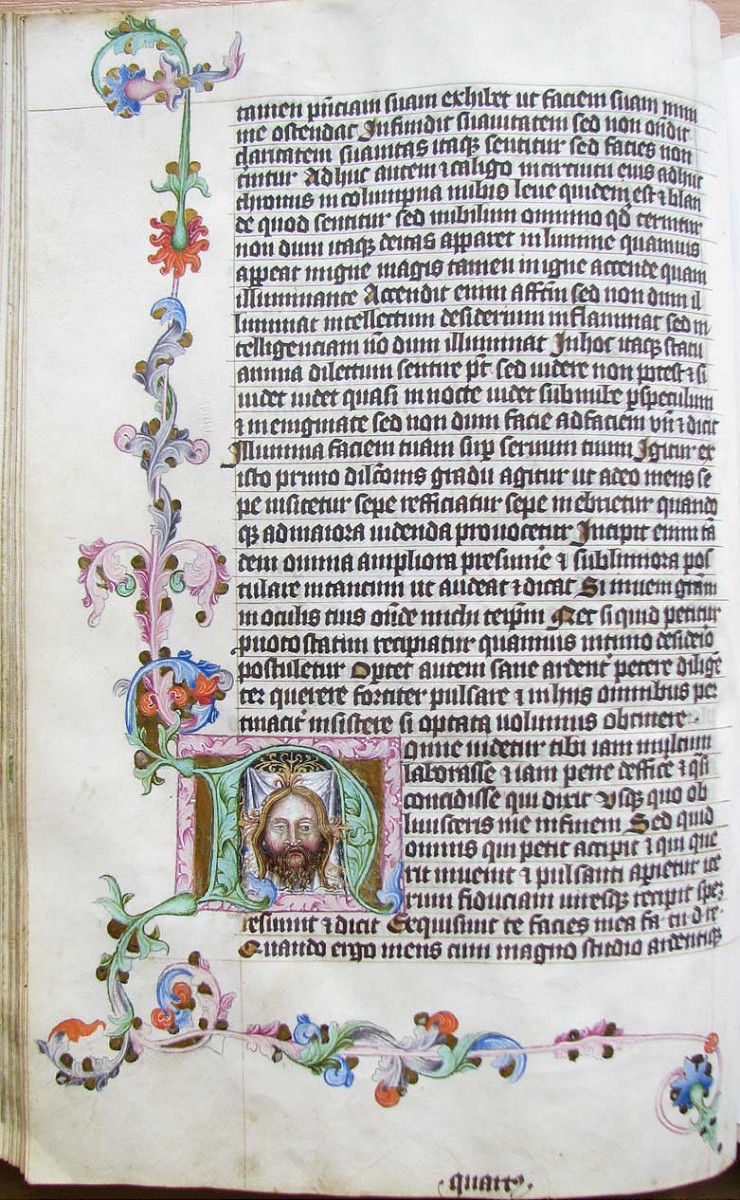 tamen pñciam suam exhibet ut faciem suam mini
me ostendat Infundit suauitatem sed non oñdit
claritatem suauitas itaq̃ sentitur sed facies non
cñitur Adhuc autem ⁊ caligo in circuitu eius adhuc
thronus in columpna nubis leue quidem est ⁊ blan
de quod sentitur sed nubilum omnino qđ cernitur
non dum itaq̃ deitas apparet in lumine quamuis
appeat in igne magis tamen in igne accende quam
illuminante Accendit enim affc̃m sed non dum il
luminat intellectum desiderium inflammat sed in
telligenciam ũo dum illuminat In hoc itaq̃ statu
anima dilectum sentire p̃t sed uidere non potest ⁊ si
uidet uidet quasi in nocte uidet sub nube p speculum
⁊ in enigmate sed non dum facie ad faciem vñ ⁊ dicit
Illumina faciem tuam sup seruum tuum Igitur ex
isto primo dil̃c̃onis gradu agitur ut adeo mens se
pe uisitetur sepe refficiatur sepe inebrietur quando
q̃ ad maiora uidenda prouocetur Incipit enim tã
dem omnia ampliora presumẽ ⁊ sublimiora pos
tulare in tantum ut audeat ⁊ dicat Si inueni gr̃am
in oculis tuis oñde michi teip̃m Nec si quid petitur
p uoto statim recipiatur quamuis intimo desid̃io
postuletur Optet autem sane ardent̾ petere dilige
ter querere fortiter pulsare ⁊ in hijs omnibus per
tinacit̾ insistere si optata uolumus obtinere
Nonne uidetur tibi iam multum
laborasse ⁊ iam pene deffice ⁊ q̃si
concidisse qui dixit Vsq̃ quo ob
liuisceris me in finem Sed quid
omnis qui petit accipit ⁊ qui que
rit inuenit ⁊ pulsanti apietur ite
rum fiduciam uiresq̃ recipit spẽ
resumit ⁊ dicit Exquisiuit te facies mea fa tu d re
Quando ergo mens cum magno studio ardentiq̃
quart9